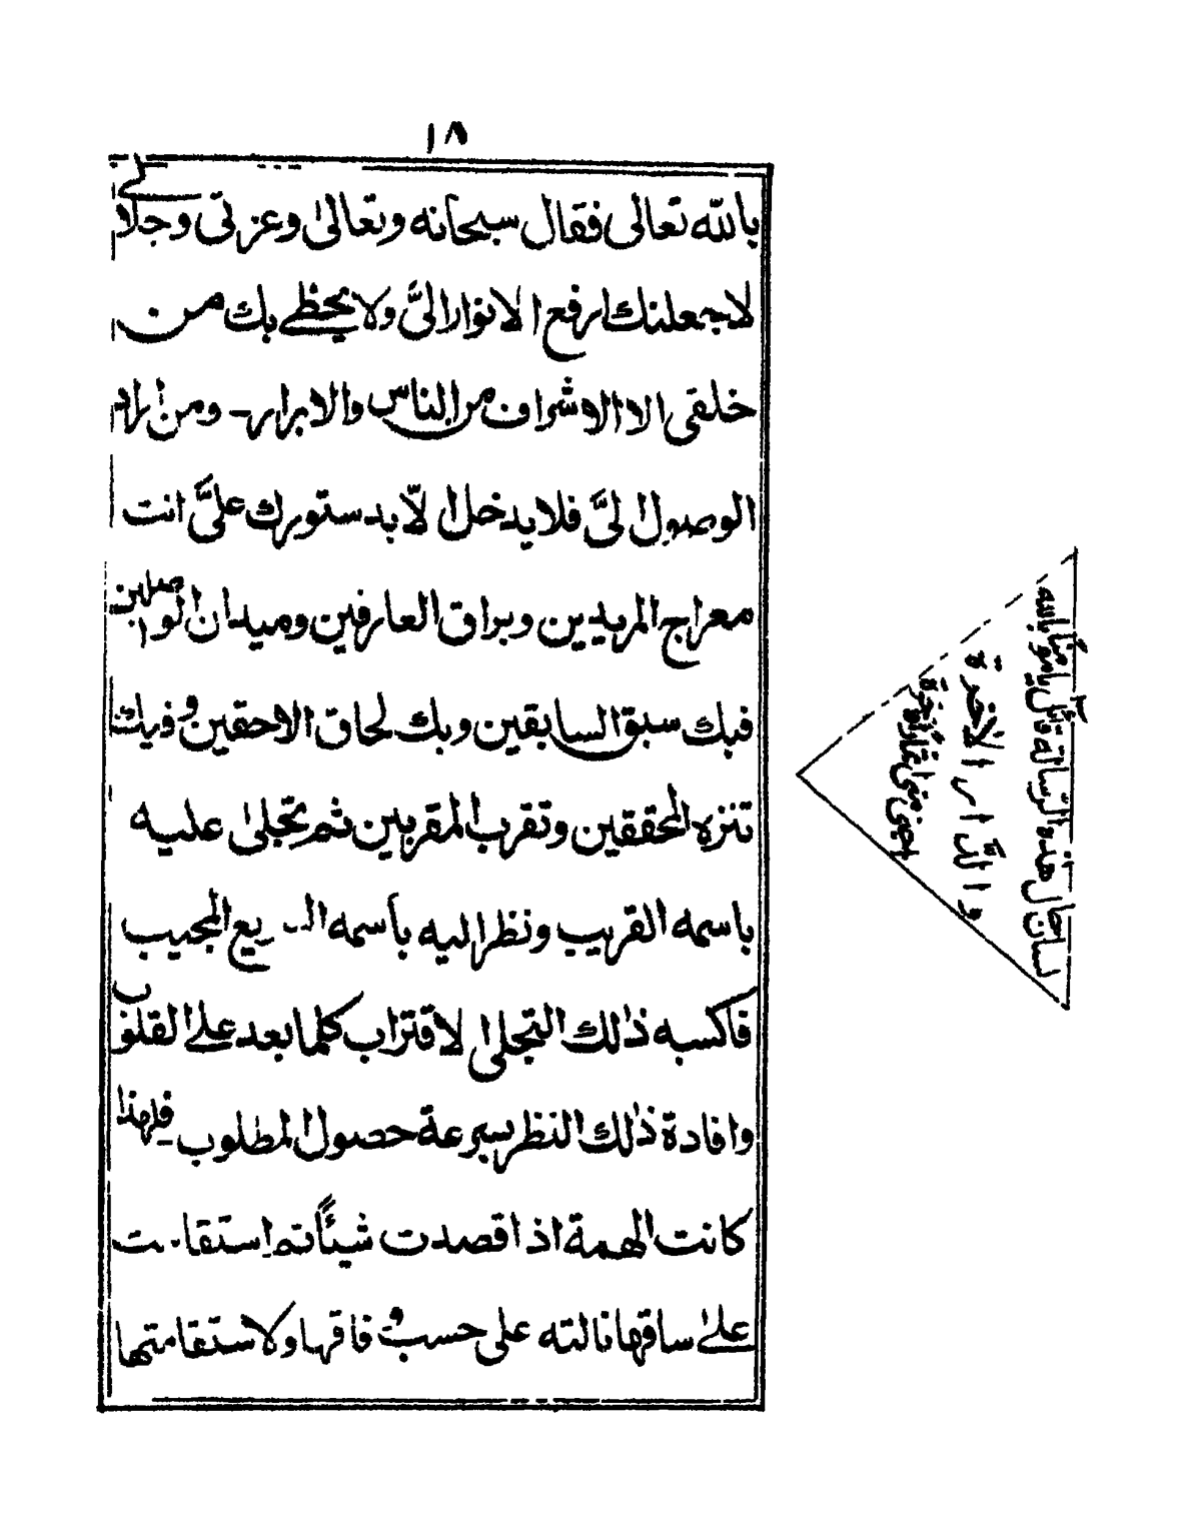 ١٨
بالله تعالى فقال سبحانه وتعالىٰ وعزتى وجلالى
لاجعلنك ارفع الانوار الىَّ ولا يحظے بك من
خلقى الا الاشراف من الناس والابرار۔ ومن اراد
الوصول الىَّ فلا يدخل الّا بدستورك علىَّ انت
معراج المريدين وبراق العارفين وميدان الواصلين
فبك سبق السابقين وبك لحاق الاحقين وفيك
تنزه المحققين وتقرب المقربين ثم تجلىٰ عليه
باسمه القريب ونظر اليه باسمه المجيب
فاكسبه ذٰلك التجلى الاقتراب كلما بعد علے القلوب
وافادة ذٰلك النظر بسرعة حصول المطلوب فلهذا
كانت الهمة اذا قصدت شيئًا ثم استقامت
علےٰ ساقها نالته على حسب وفاقها ولاستقامتها
هذه الرسالة قائل يا مؤ بالله
والدّار الاخرة